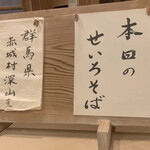 本日の
せいろそば
群馬県
赤城村深山産